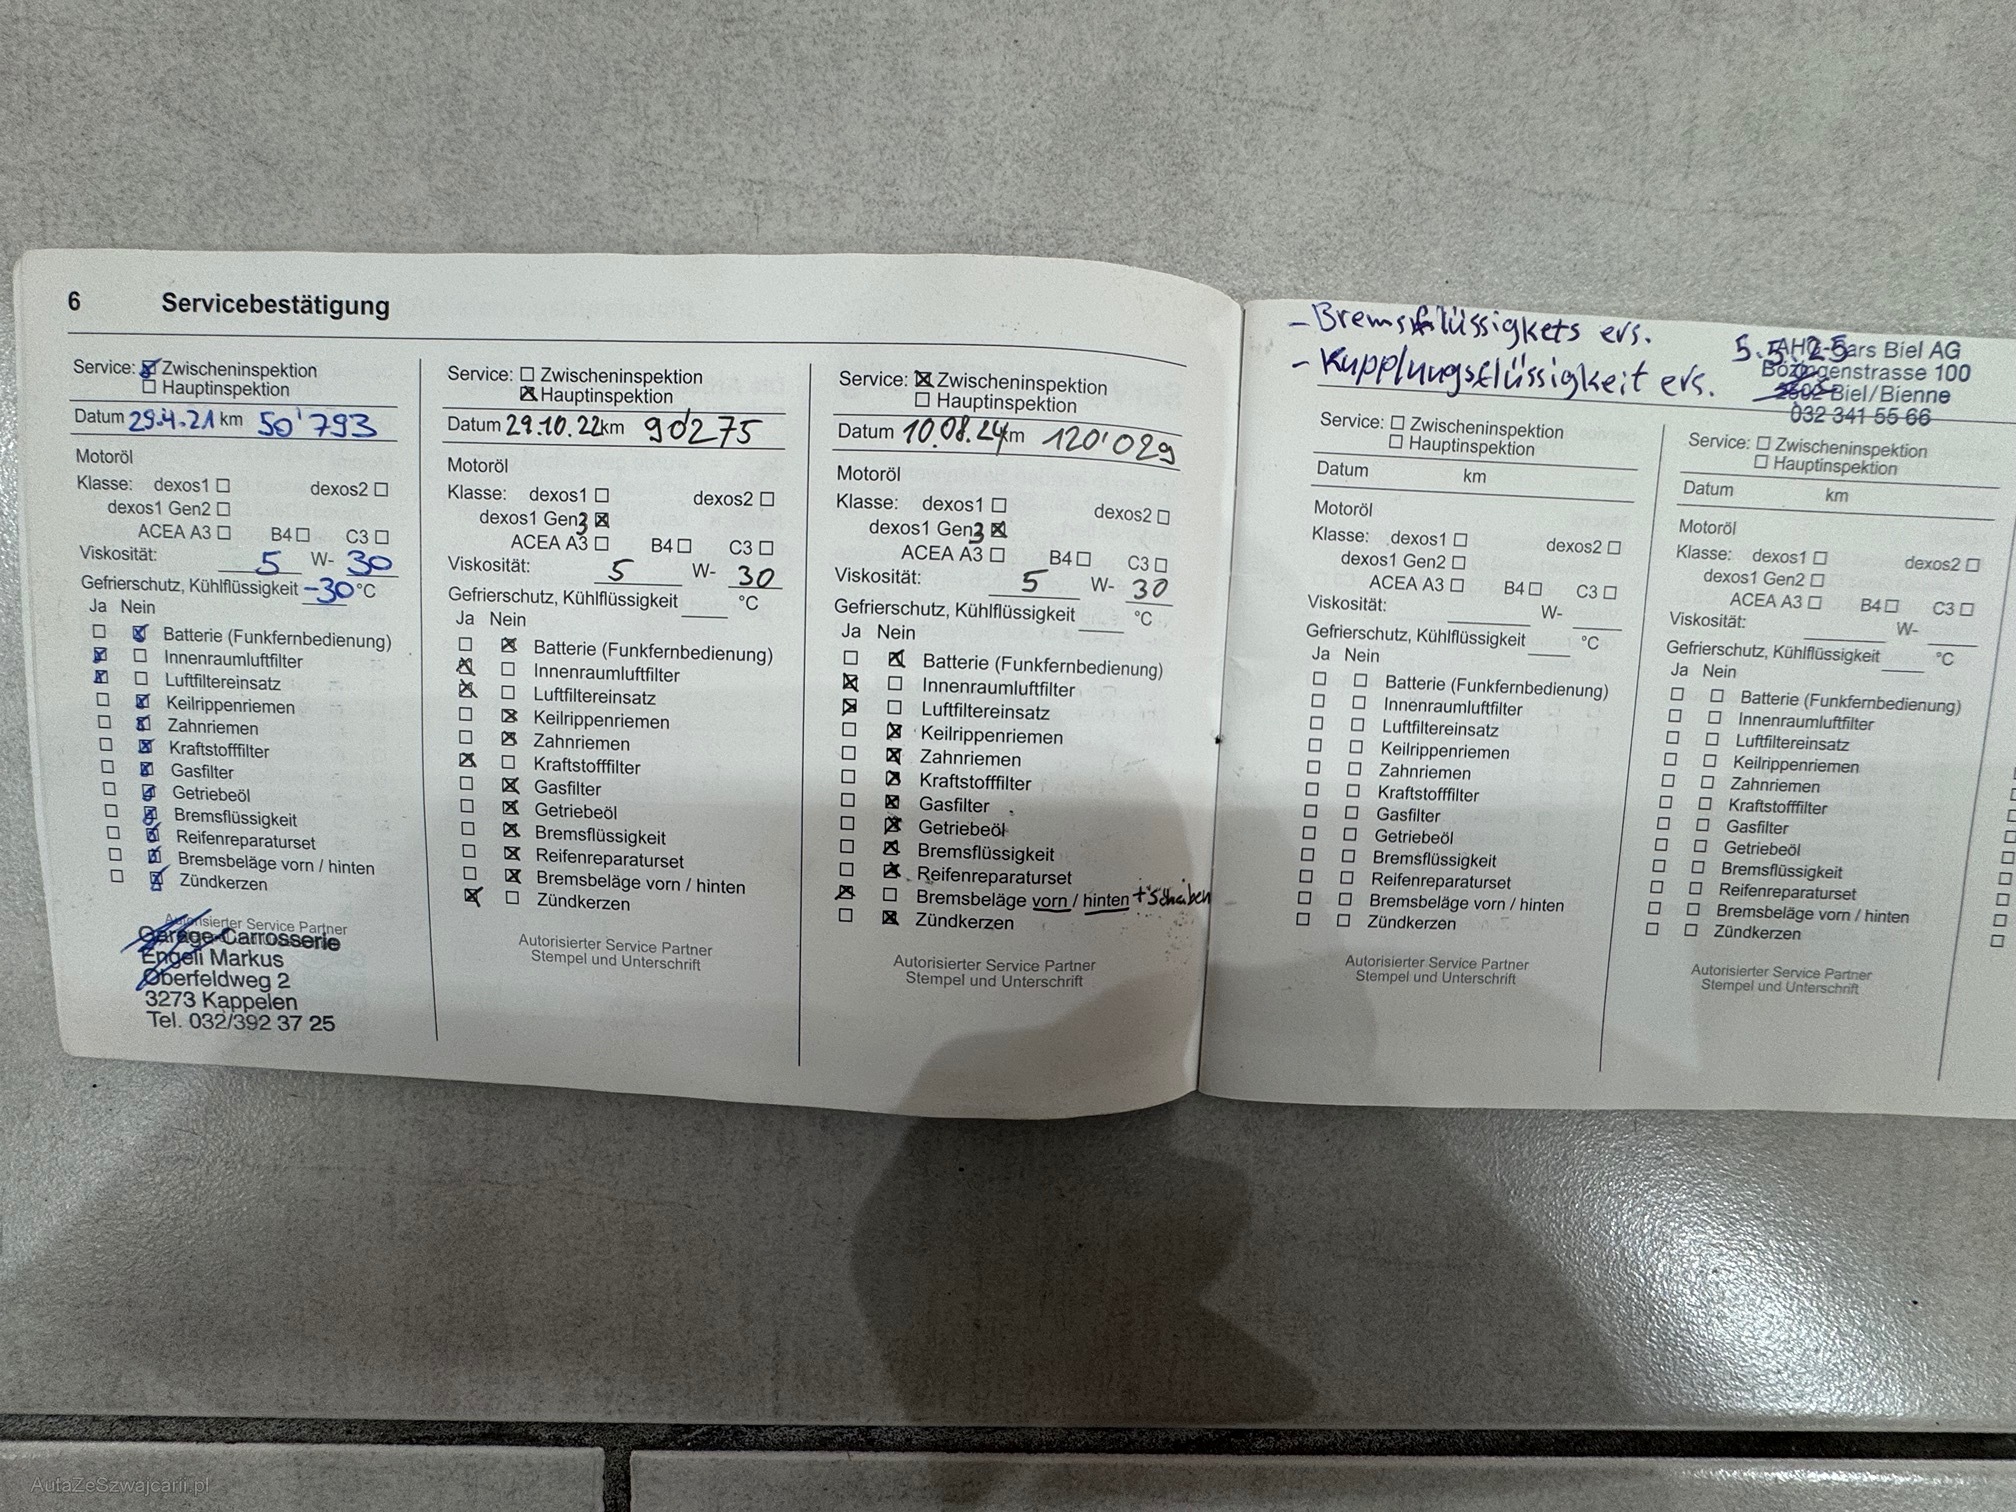 6 Servicebestätigung
Service: ☒ Zwischeninspektion
☐ Hauptinspektion
Datum 29.4.21 km 50'793
Motoröl
Klasse: dexos1 ☐ dexos2 ☐
dexos1 Gen2 ☐
ACEA A3 ☐ B4 ☐ C3 ☐
Viskosität: 5 W- 30
Gefrierschutz, Kühlflüssigkeit -30 °C
Ja Nein
☐ ☒ Batterie (Funkfernbedienung)
☒ ☐ Innenraumluftfilter
☒ ☐ Luftfiltereinsatz
☐ ☒ Keilrippenriemen
☐ ☒ Zahnriemen
☐ ☒ Kraftstofffilter
☐ ☒ Gasfilter
☐ ☒ Getriebeöl
☐ ☒ Bremsflüssigkeit
☐ ☒ Reifenreparaturset
☐ ☒ Bremsbeläge vorn / hinten
☐ ☒ Zündkerzen
Autorisierter Service Partner
Garage-Carrosserie
Engeli Markus
Oberfeldweg 2
3273 Kappelen
Tel. 032/392 37 25
Service: ☐ Zwischeninspektion
☒ Hauptinspektion
Datum 29.10.22 km 90'275
Motoröl
Klasse: dexos1 ☐ dexos2 ☐
dexos1 Gen3 ☒
ACEA A3 ☐ B4 ☐ C3 ☐
Viskosität: 5 W- 30
Gefrierschutz, Kühlflüssigkeit ____ °C
Ja Nein
☐ ☒ Batterie (Funkfernbedienung)
☒ ☐ Innenraumluftfilter
☒ ☐ Luftfiltereinsatz
☐ ☒ Keilrippenriemen
☐ ☒ Zahnriemen
☒ ☐ Kraftstofffilter
☐ ☒ Gasfilter
☐ ☒ Getriebeöl
☐ ☒ Bremsflüssigkeit
☐ ☒ Reifenreparaturset
☐ ☒ Bremsbeläge vorn / hinten
☒ ☐ Zündkerzen
Autorisierter Service Partner
Stempel und Unterschrift
Service: ☒ Zwischeninspektion
☐ Hauptinspektion
Datum 10.08.24 km 120'029
Motoröl
Klasse: dexos1 ☐ dexos2 ☐
dexos1 Gen3 ☒
ACEA A3 ☐ B4 ☐ C3 ☐
Viskosität: 5 W- 30
Gefrierschutz, Kühlflüssigkeit ____ °C
Ja Nein
☐ ☒ Batterie (Funkfernbedienung)
☒ ☐ Innenraumluftfilter
☒ ☐ Luftfiltereinsatz
☐ ☒ Keilrippenriemen
☐ ☒ Zahnriemen
☐ ☒ Kraftstofffilter
☐ ☒ Gasfilter
☐ ☒ Getriebeöl
☐ ☒ Bremsflüssigkeit
☐ ☒ Reifenreparaturset
☒ ☐ Bremsbeläge vorn / hinten + Scheiben
☐ ☒ Zündkerzen
Autorisierter Service Partner
Stempel und Unterschrift
- Bremsflüssigkets ers.
- Kupplungsflüssigkeit ers.
5.5.25
Cars Biel AG
Bözingenstrasse 100
2502 Biel/Bienne
032 341 55 66
Service: ☐ Zwischeninspektion
☐ Hauptinspektion
Datum km
Motoröl
Klasse: dexos1 ☐ dexos2 ☐
dexos1 Gen2 ☐
ACEA A3 ☐ B4 ☐ C3 ☐
Viskosität: ____ W- ____
Gefrierschutz, Kühlflüssigkeit ____ °C
Ja Nein
☐ ☐ Batterie (Funkfernbedienung)
☐ ☐ Innenraumluftfilter
☐ ☐ Luftfiltereinsatz
☐ ☐ Keilrippenriemen
☐ ☐ Zahnriemen
☐ ☐ Kraftstofffilter
☐ ☐ Gasfilter
☐ ☐ Getriebeöl
☐ ☐ Bremsflüssigkeit
☐ ☐ Reifenreparaturset
☐ ☐ Bremsbeläge vorn / hinten
☐ ☐ Zündkerzen
Autorisierter Service Partner
Stempel und Unterschrift
Service: ☐ Zwischeninspektion
☐ Hauptinspektion
Datum km
Motoröl
Klasse: dexos1 ☐ dexos2 ☐
dexos1 Gen2 ☐
ACEA A3 ☐ B4 ☐ C3 ☐
Viskosität: ____ W- ____
Gefrierschutz, Kühlflüssigkeit ____ °C
Ja Nein
☐ ☐ Batterie (Funkfernbedienung)
☐ ☐ Innenraumluftfilter
☐ ☐ Luftfiltereinsatz
☐ ☐ Keilrippenriemen
☐ ☐ Zahnriemen
☐ ☐ Kraftstofffilter
☐ ☐ Gasfilter
☐ ☐ Getriebeöl
☐ ☐ Bremsflüssigkeit
☐ ☐ Reifenreparaturset
☐ ☐ Bremsbeläge vorn / hinten
☐ ☐ Zündkerzen
Autorisierter Service Partner
Stempel und Unterschrift
AutaZeSzwajcarii.pl